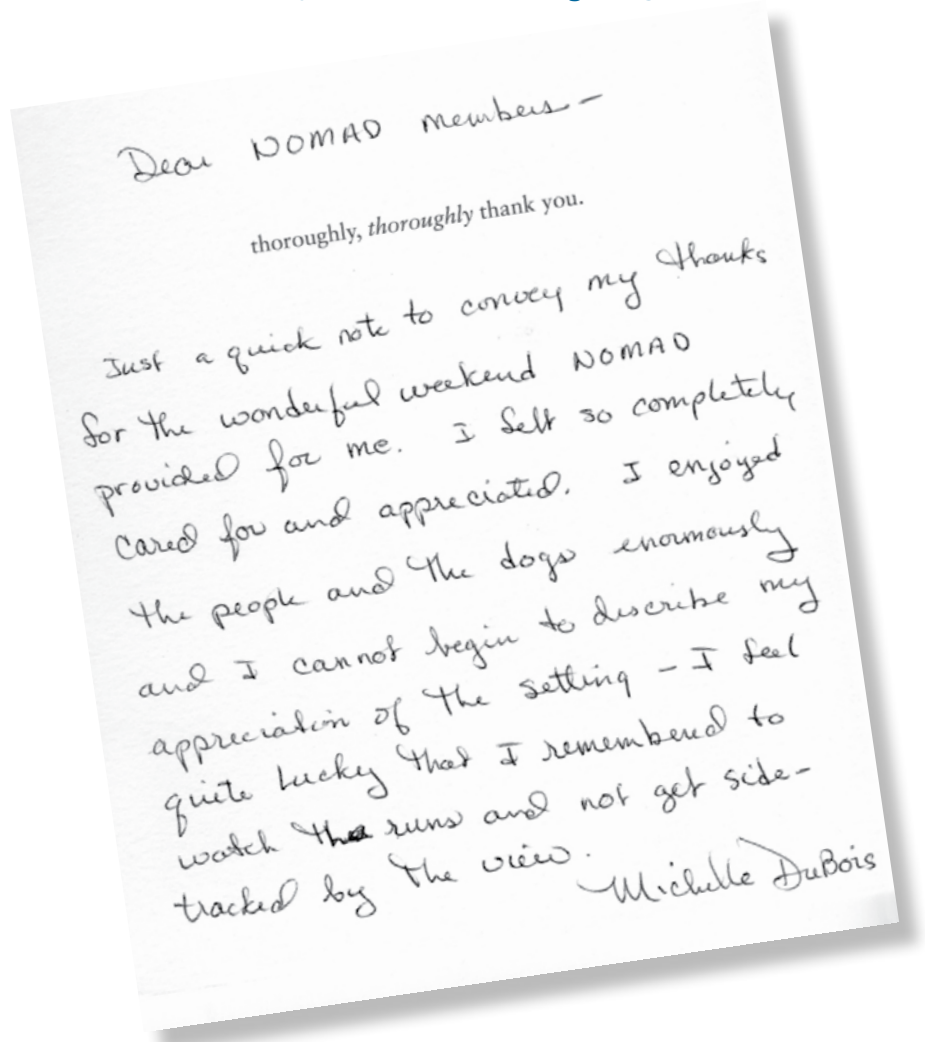 Dear NOMAD members—
thoroughly, thoroughly thank you.
Just a quick note to convey my thanks
for the wonderful weekend NOMAD
provided for me. I felt so completely
cared for and appreciated. I enjoyed
the people and the dogs enormously
and I cannot begin to describe my
appreciation of the setting – I feel
quite lucky that I remembered to
watch the runs and not get side-
tracked by the view.
Michelle DuBois